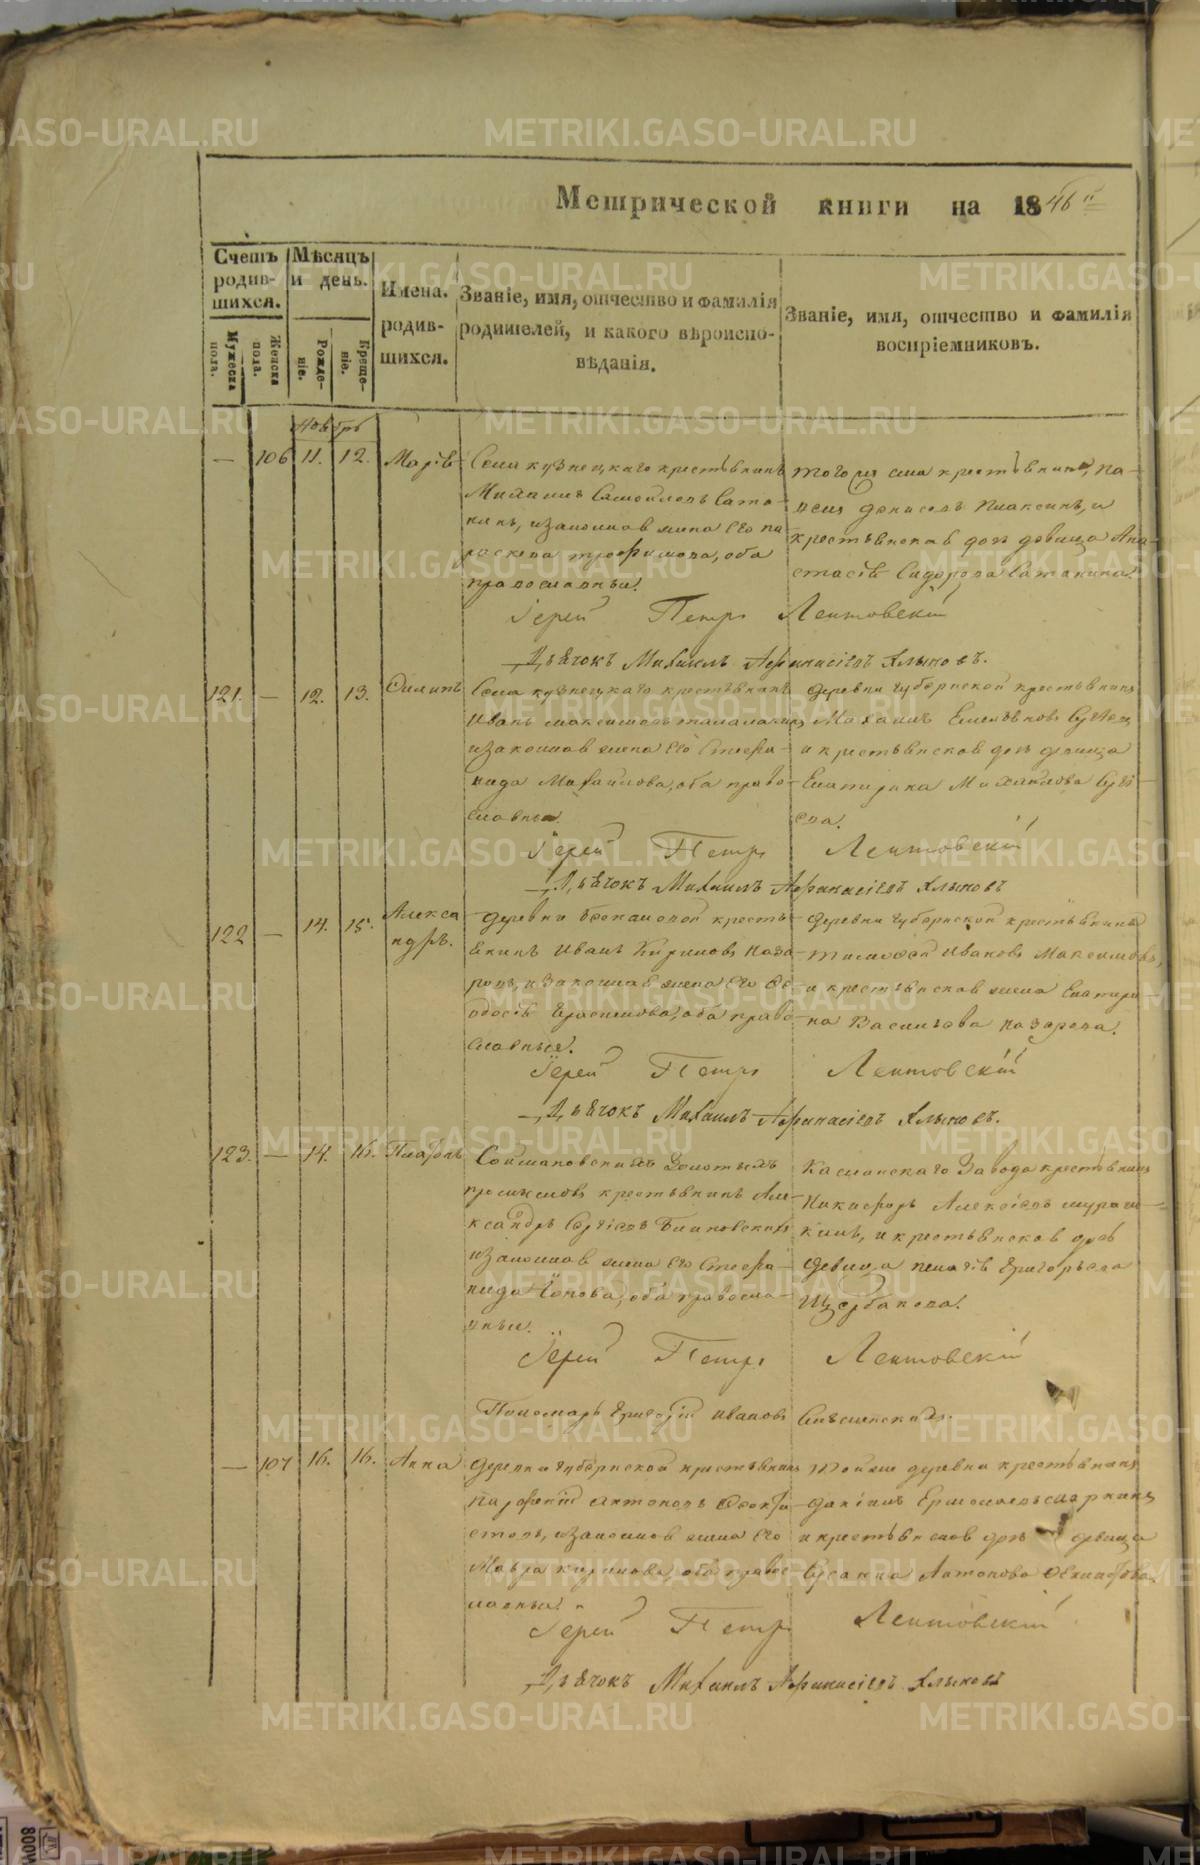 Метрической книги на 1846й
Счетъ родившихся.
Мѣсяцъ и день.
Имена родившихся.
Званіе, имя, отчество и фамилія родителей, и какого вѣроисповѣданія.
Званіе, имя, отчество и фамилія воспріемниковъ.
Мужеска пола.
Женска пола.
Рожденіе.
Крещеніе.
Ноябрь
— 106 11. 12. Марія
Села кузнецкаго крестьянинъ
Михаилъ Самойловъ Сата-
кинъ, и законная жена его па
раскева трофимова, оба
православныи.
того же села крестьянинъ,
Денисовъ Плаксинъ, и
крестьянская дочь девица Ана-
стасія Сидорова Сатакина.
Іерей Петръ Лентовскій
Дьячокъ Михаилъ Афанасіевъ Хлыновъ.
121. — 12. 13. Филипъ
Села кузнецкаго крестьянинъ
Иванъ максимовъ
и законная жена его Стефа-
нида Михайлова, оба право-
славныи
деревни губернской крестьянинъ
Михаилъ Емельяновъ
и крестьянская дочь девица
Екатерина Михайлова
Іерей Петръ Лентовскій
Дьячокъ Михаилъ Афанасіевъ Хлыновъ
122 — 14. 15. Алекса
ндръ.
деревни крестья-
нинъ Иванъ Кириловъ Наза-
ровъ, и законная жена его Фе-
одосія Герасимова, оба право-
славныя.
деревни губернской крестьянинъ
Тимофей Ивановъ Максимовъ,
и крестьянская жена Екатери-
на Васильева Назарова.
Іерей Петръ Лентовскій
Дьячокъ Михаилъ Афанасіевъ Хлыновъ.
123. — 14. 16. Платонъ
Соймановскихъ Золотыхъ
промысловъ крестьянинъ Але-
ксандръ Сергіевъ
и законная жена его Стефа-
нида Іонова, оба правосла-
вныи.
Каслинскаго Завода крестьянинъ
Никифоръ Алексіевъ
и крестьянская дочь
девица Пелагія Григорьева
Щербакова.
Іерей Петръ Лентовскій
Пономарь Григорій Ивановъ
— 107 16. 16. Анна
деревни губернской крестьянинъ
Парфеній Антоновъ
и законная жена его
Мавра Кирилова, оба правос-
лавныи.
тойже деревни крестьянинъ
Даніилъ Ермолаевъ
и крестьянская дочь девица
Антонова
Іерей Петръ Лентовскій
Дьячокъ Михаилъ Афанасіевъ Хлыновъ
METRIKI.GASO-URAL.RU